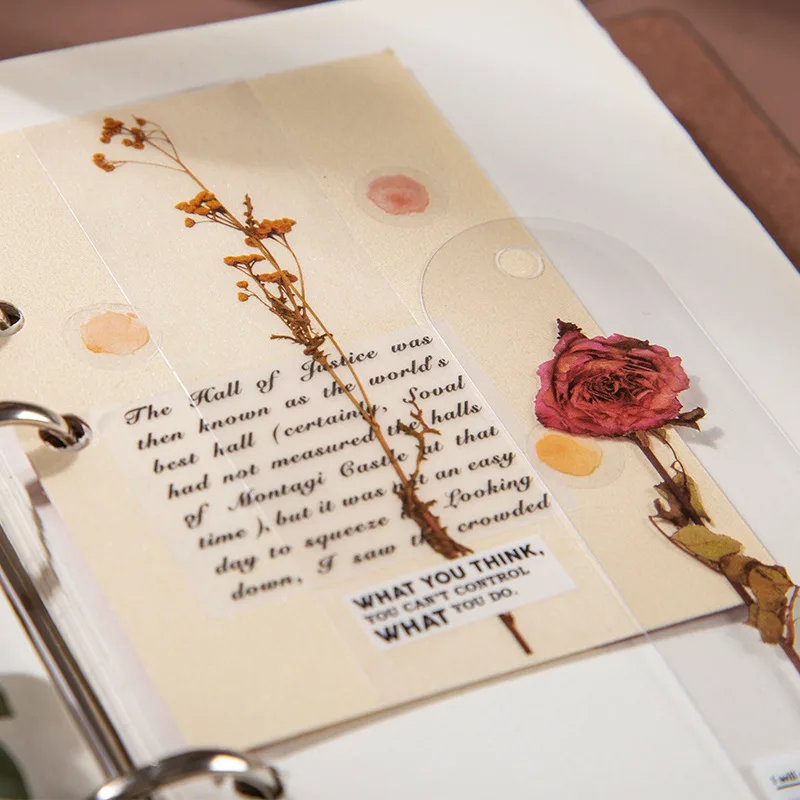 The Hall of Justice was
then known as the world's
best hall (certainly, Soval
had not measured the halls
of Montagi Castle at that
time ), but it was not an easy
day to squeeze Looking
down, I saw the crowded
WHAT YOU THINK,
YOU CAN'T CONTROL
WHAT YOU DO.
I will